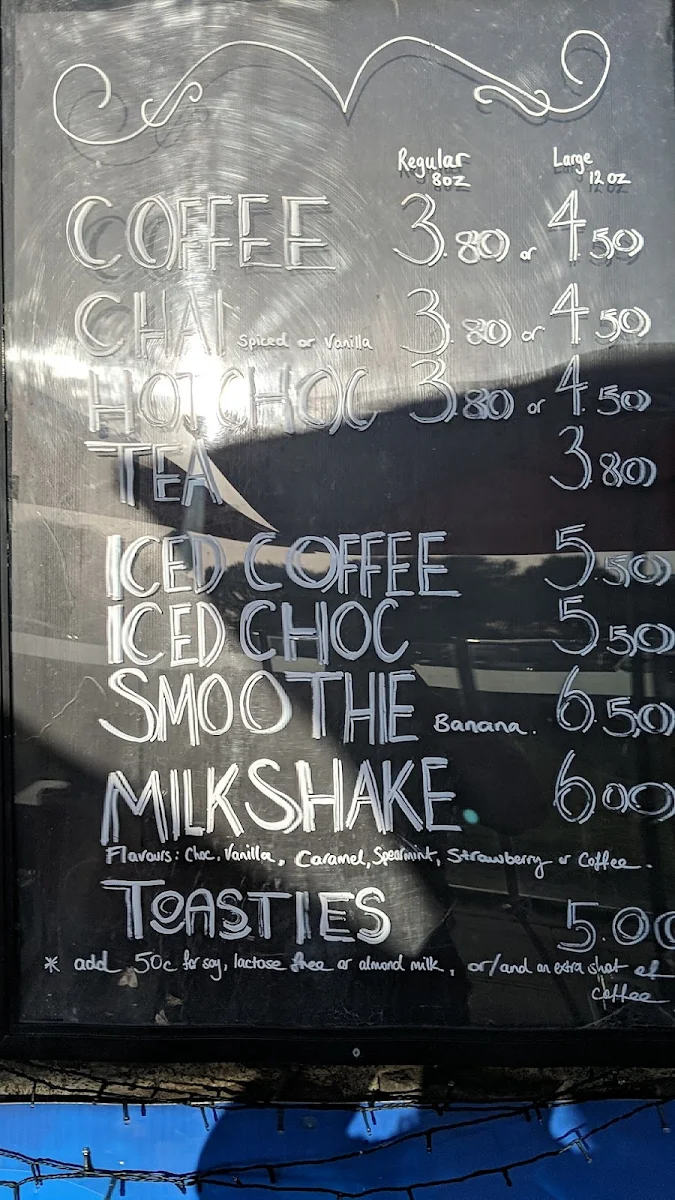 Regular Large
8oz 12 oz
COFFEE 3.80 or 4.50
CHAI Spiced or Vanilla 3.80 or 4.50
HOT CHOC 3.80 or 4.50
TEA 3.80
ICED COFFEE 5.50
ICED CHOC 5.50
SMOOTHE Banana. 6.50
MILKSHAKE 6.00
Flavours: Choc, Vanilla, Caramel, Spearmint, Strawberry or Coffee.
TOASTIES 5.00
* add 50c for soy, lactose free or almond milk, or/and an extra shot of
coffee